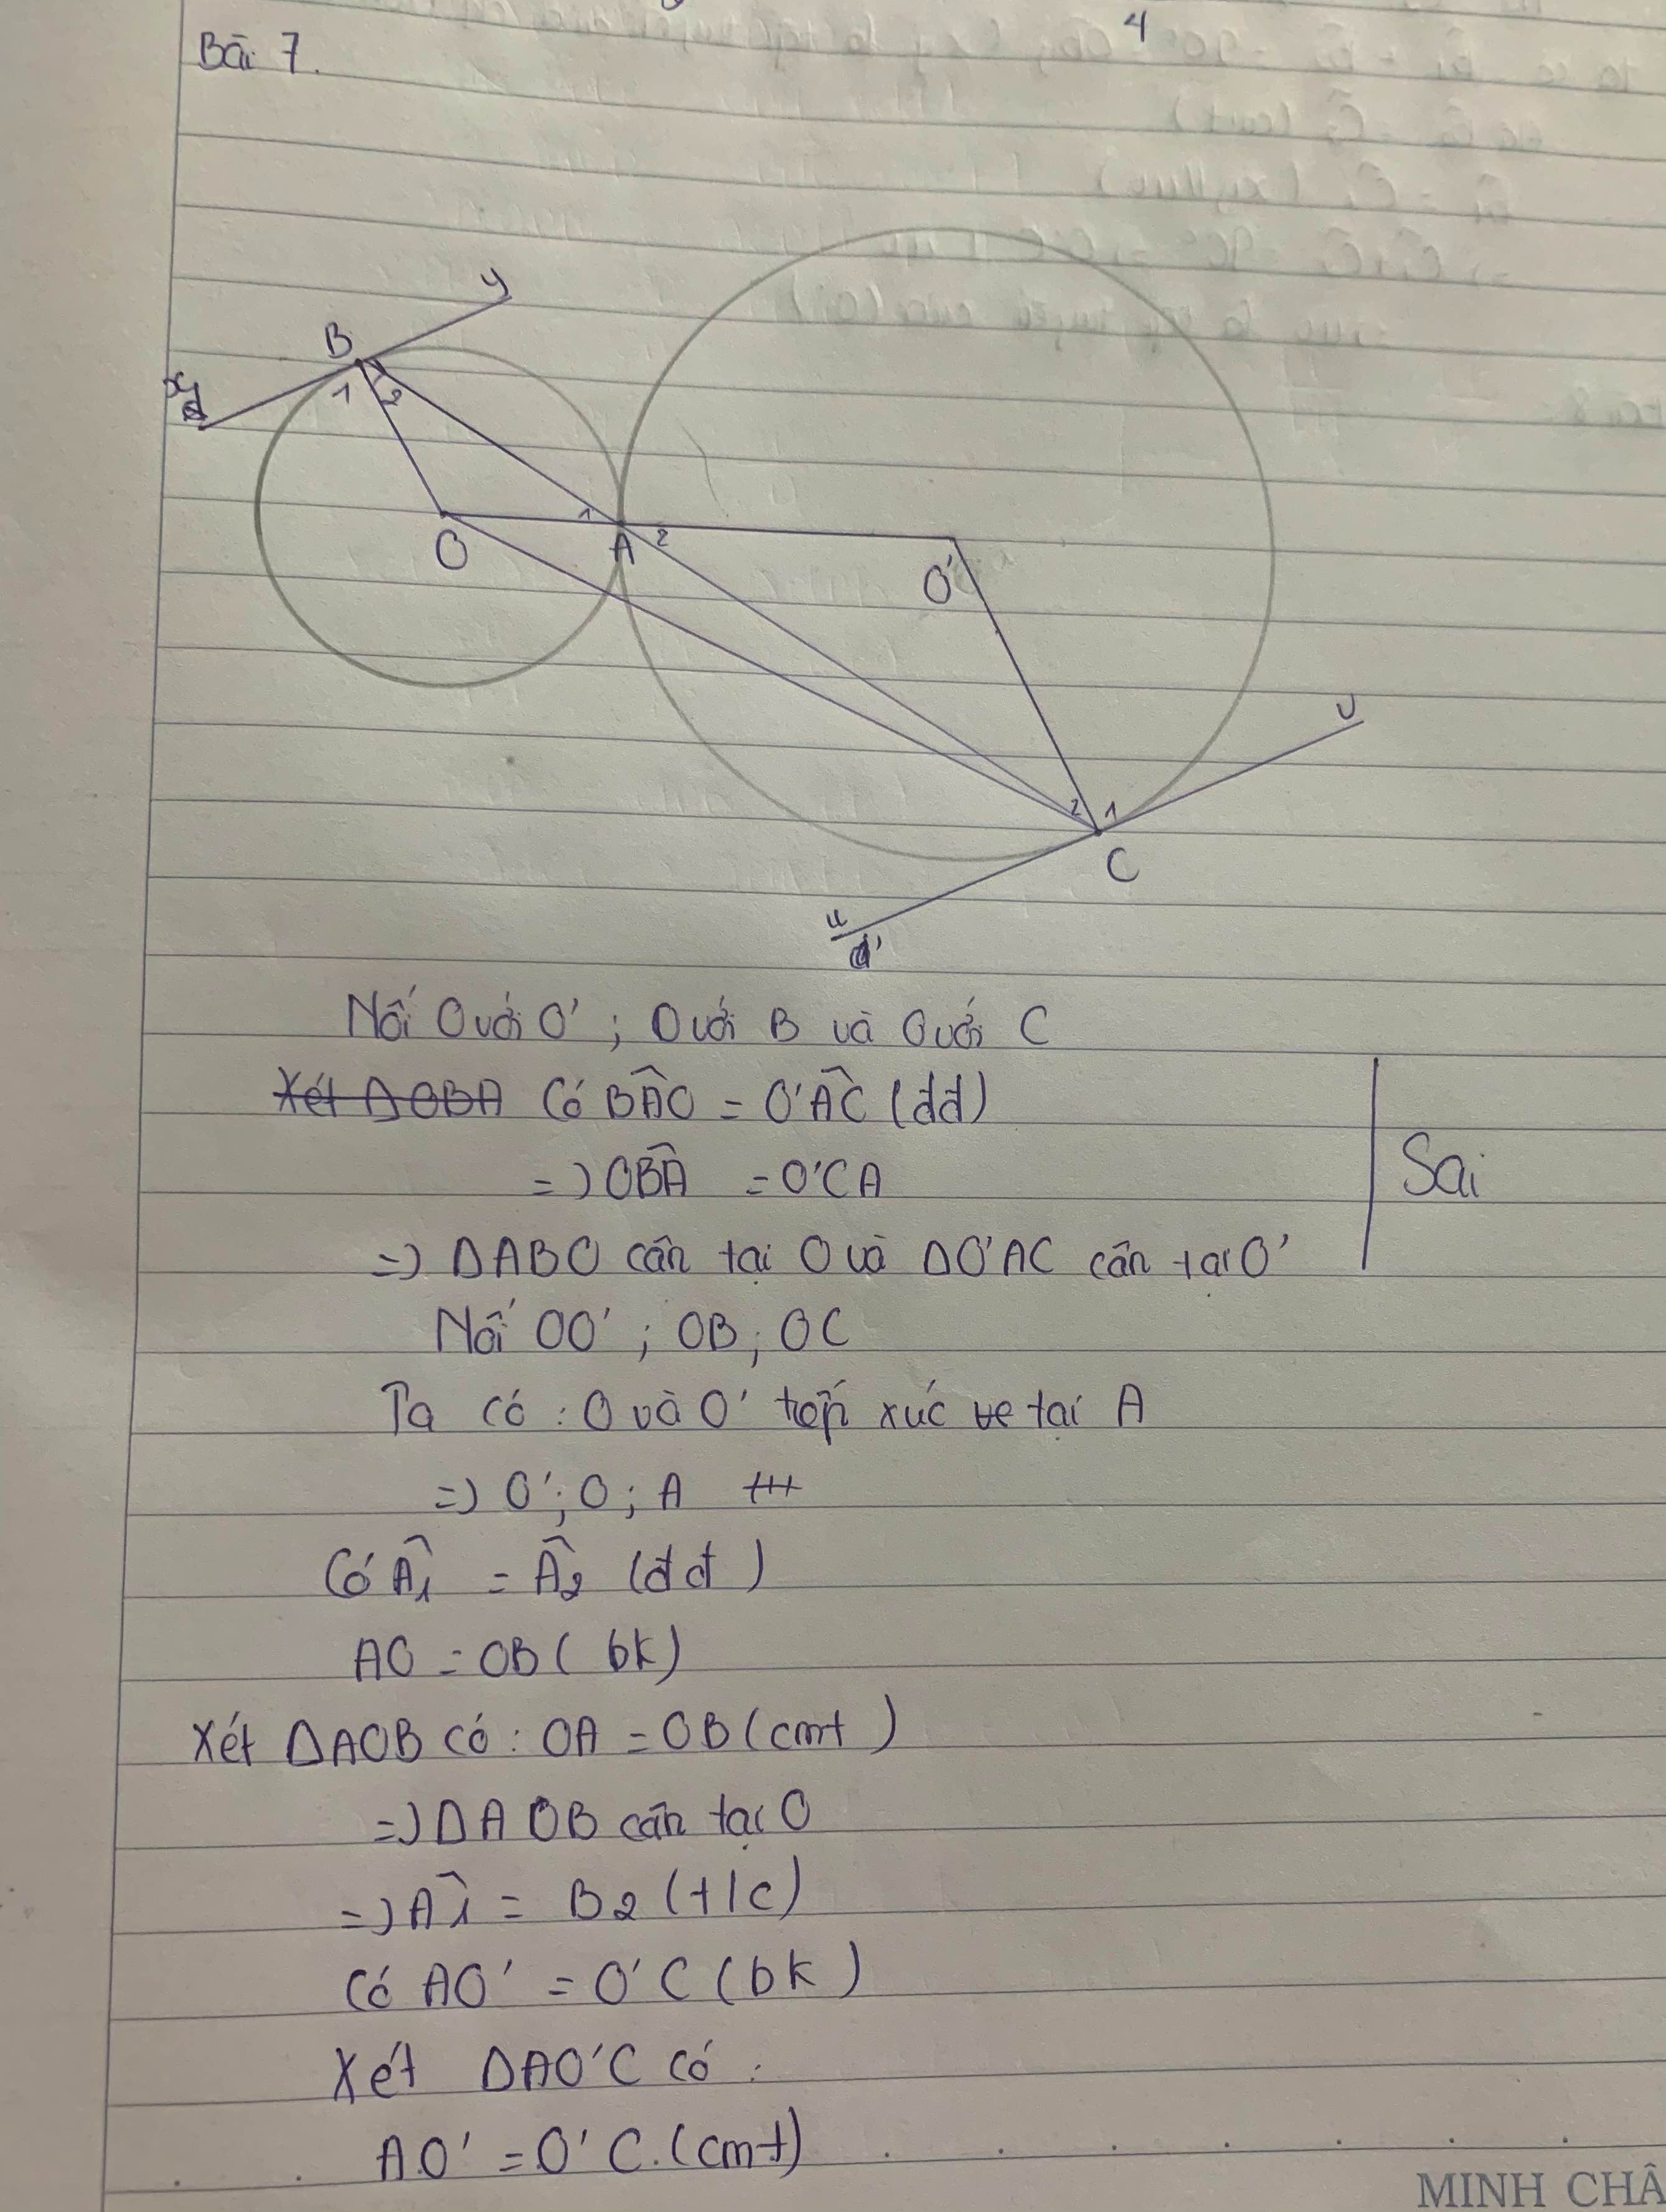 4
Bài 7.
y
B
x
d
1
2
1
2
O
A
O'
v
2
1
C
u
d'
Nối O với O' ; O với B và O với C
Xét ΔOBA Có BÂO = O'ÂC (đđ)
=> OBÂ = O'CA
Sai
=> ΔABO cân tại O và ΔO'AC cân tại O'
Nối OO' ; OB ; OC
Ta có : O và O' tiếp xúc tại A
=> O' ; O ; A
Có Â1 = Â2 (đđ)
AO = OB ( bk)
Xét ΔAOB có : OA = OB (cmt)
=> ΔAOB cân tại O
=> Â1 = B2 (t/c)
Có AO' = O'C (bk)
Xét ΔAO'C có :
AO' = O'C. (cmt)
MINH CHÂ